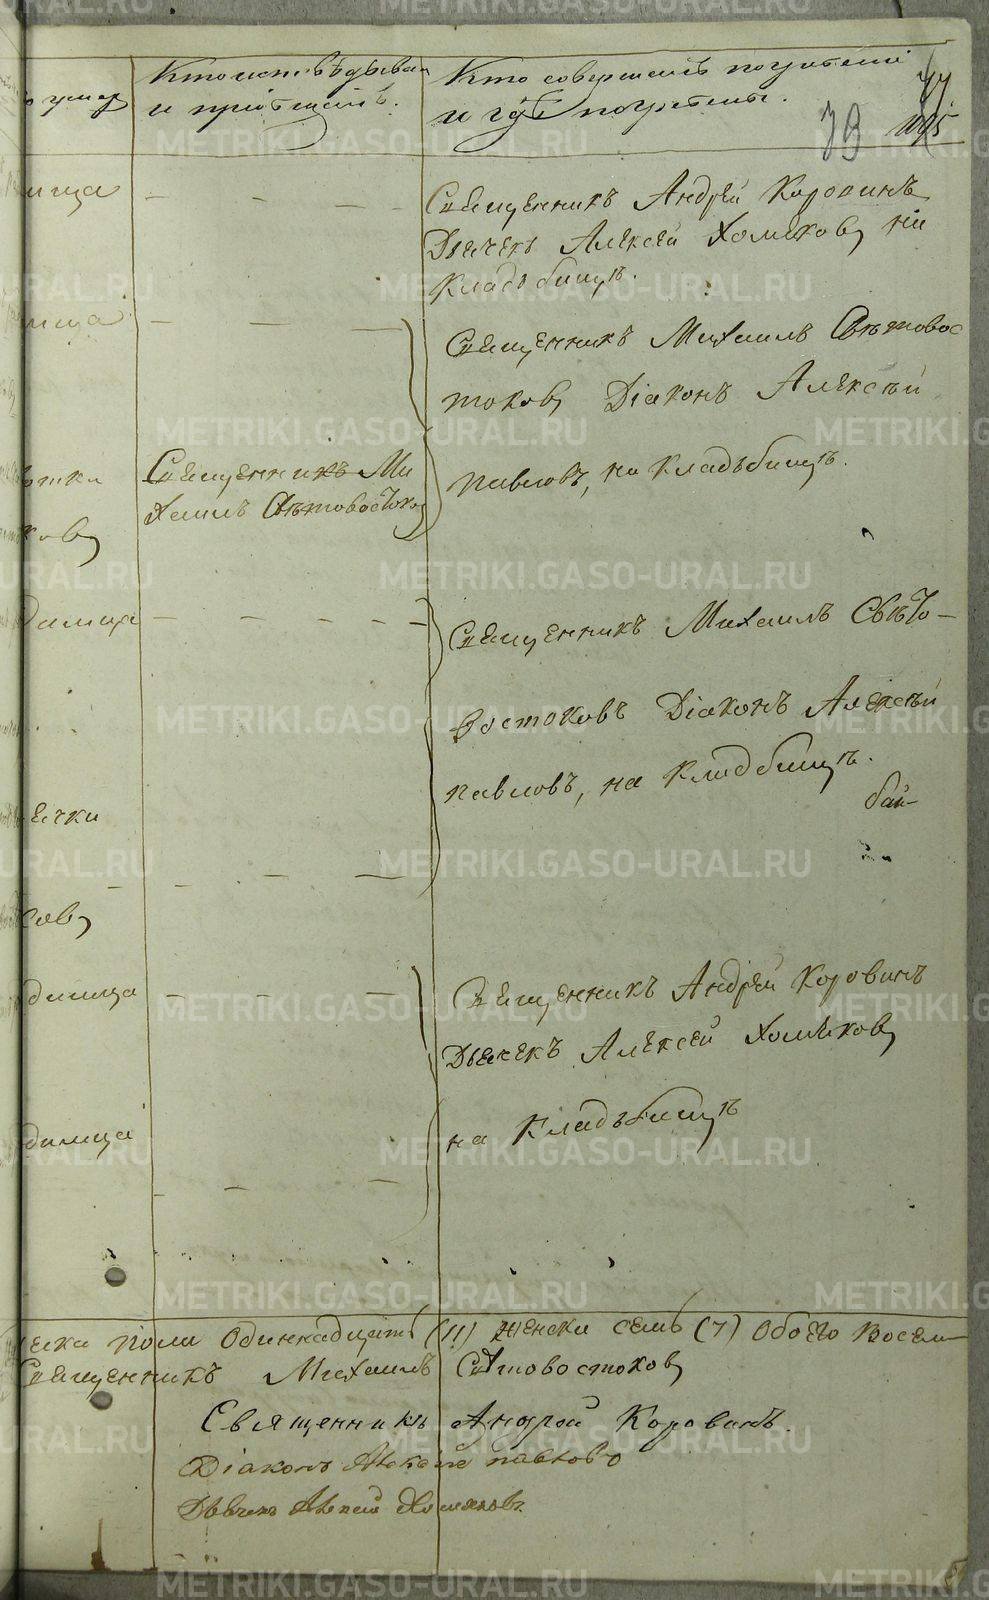 Кто исповѣдывал
и пріобщалъ.
Кто совершалъ погребеніе
и гдѣ погребены.
39
Священникъ Андрей Коровинъ
Дьячекъ Алексей Хомяковъ на
Кладьбищѣ.
Священникъ Михаилъ Свѣтовос
токовъ Діаконъ Алексѣй
Павловъ, на Кладьбищѣ.
Священникъ Ми
хаилъ Свѣтовостоковъ
Священникъ Михаилъ Свѣто-
востоковъ Діаконъ Алексѣй
Павловъ, на Кладбищѣ.
Священникъ Андрей Коровинъ
Дьячекъ Алексей Хомяковъ
на Кладьбищѣ
дилица
ческа пола Одиннадцать (11) Женска семь (7) Обоего Восем-
Священникъ Михаилъ Свѣтовостоковъ
Священникъ Андрей Коровинъ.
Діаконъ Алексѣй Павловъ
Дьячекъ Алексей Хомяковъ.
METRIKI.GASO-URAL.RU